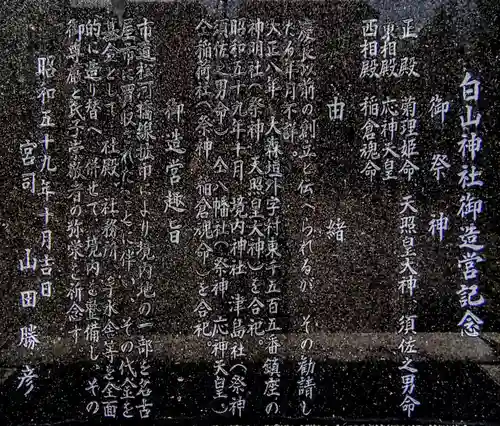 白山神社御造営記念
御祭神
正殿 菊理姫命 天照皇大神 須佐之男命
東相殿 応神天皇
西相殿 稲倉魂命
由緒
慶長以前の創立と伝へられるが、その勧請し
たる年月不詳。
大正八年、大森
番鎮座の
神明社(祭神 天照皇大神)を合祀。
昭和五十九年十月、境内神社 津島社(祭神
須佐之男命)、八幡社(祭神 応神天皇)、
稲荷社(祭神 稲倉魂命)を合祀。
御造営趣旨
市道松河橋線拡巾により境内地の一部を名古
屋市に買収されたことに伴い、その代金を
基金として、社殿、社務所、手水舎等を全面
的に造り替へ、併せて、境内を整備し、その
御尊厳と氏子崇敬者の弥栄を祈念す
昭和五十九年十月吉日
宮司 山田勝彦